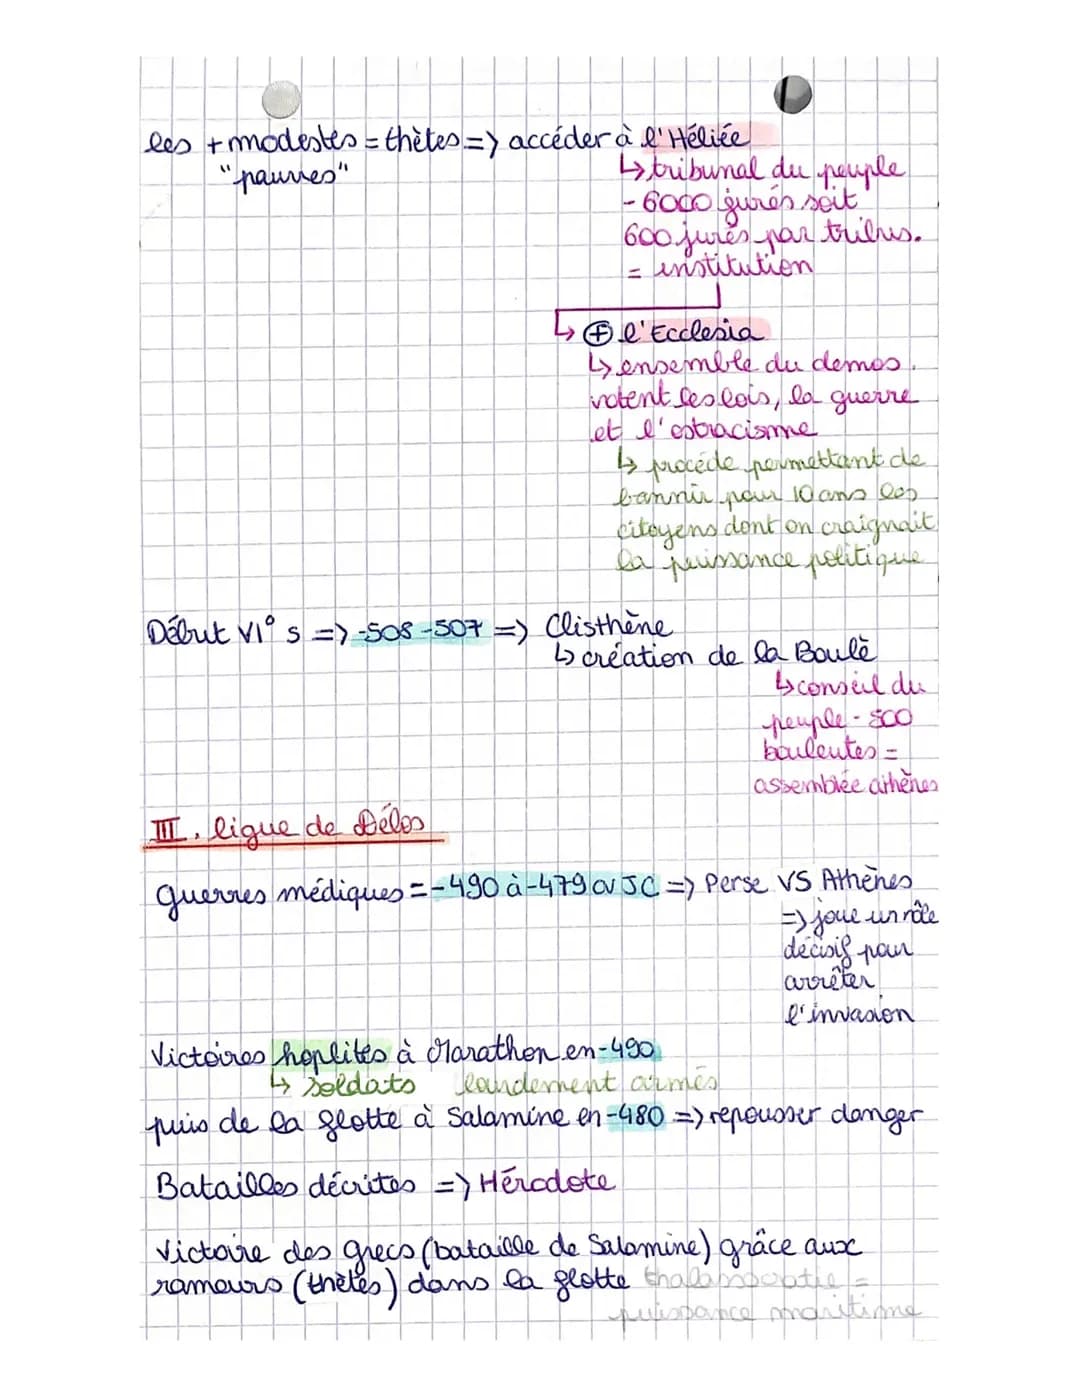 les + modestes = thètes => accéder à l'Héliée
"pauvres"
↳ tribunal du peuple
- 6000 jurés soit
600 jurés par tribus.
= institution
↳ ⊕ l'Ecclesia
↳ ensemble du demos
votent les lois, la guerre
et l'ostracisme
↳ procédé permettant de
bannir pour 10 ans les
citoyens dont on craignait
la puissance politique
Début VI° s => -508 -507 => Clisthène
↳ création de la Boulè
↳ conseil du
peuple - 500
bouleutes =
assemblée athènes
III. ligue de Délos
guerres médiques = -490 à -479 av JC => Perse VS Athènes
=> joue un rôle
décisif pour
arrêter
l'invasion
Victoires hoplites à Marathon en -490
↳ soldats lourdement armés
puis de la flotte à Salamine en -480 => repousser danger
Batailles décrites => Hérodote
Victoire des grecs (bataille de Salamine) grâce aux
rameurs (thètes) dans la flotte thalassocratie =
puissance maritime